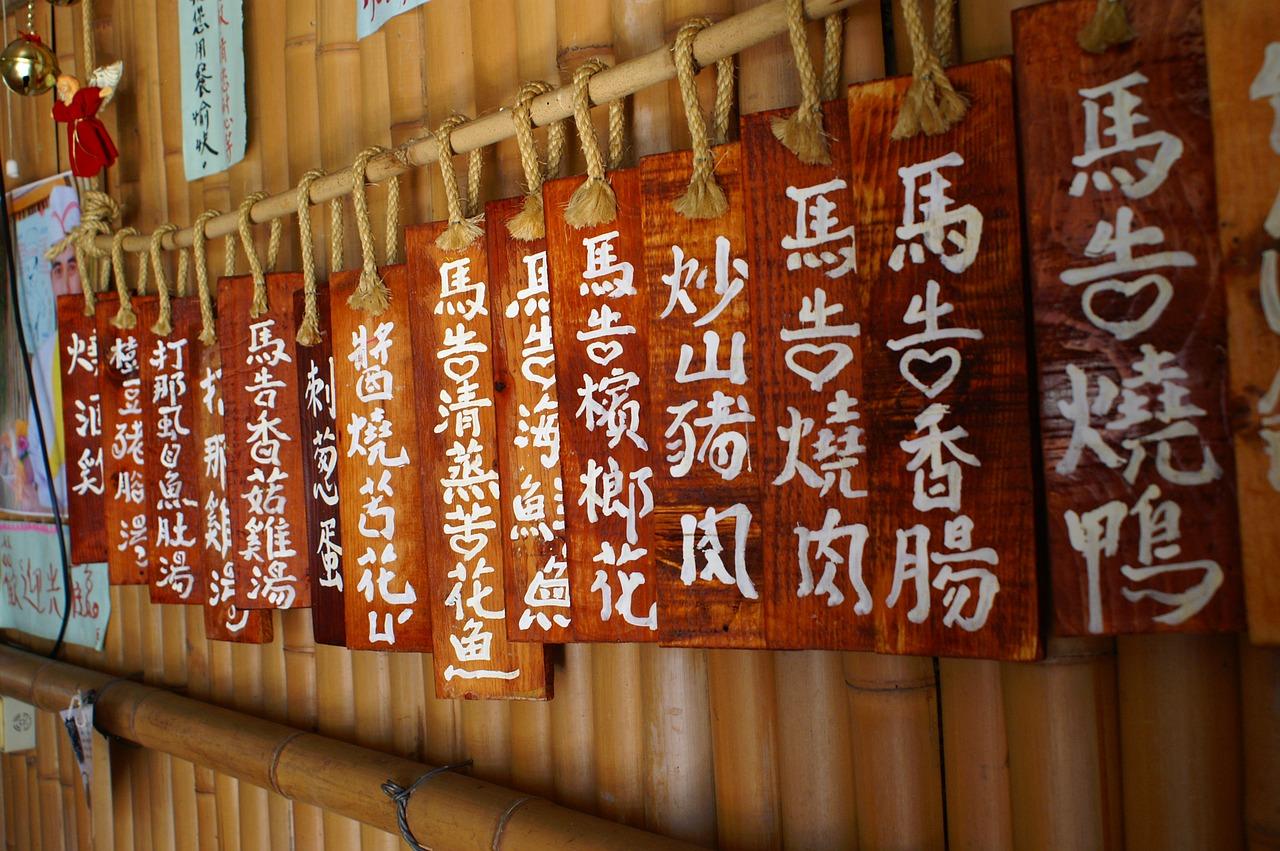 馬告燒鴨
馬告香腸
馬告燒肉
炒山豬肉
馬告檳榔花
馬告海魚
馬告清蒸苦花魚
醬燒苦花
刺蔥蛋
馬告香菇雞湯
打那雞湯
打那虱目魚肚湯
樹豆豬腳湯
燒酒
您用餐愉快
歡迎光臨